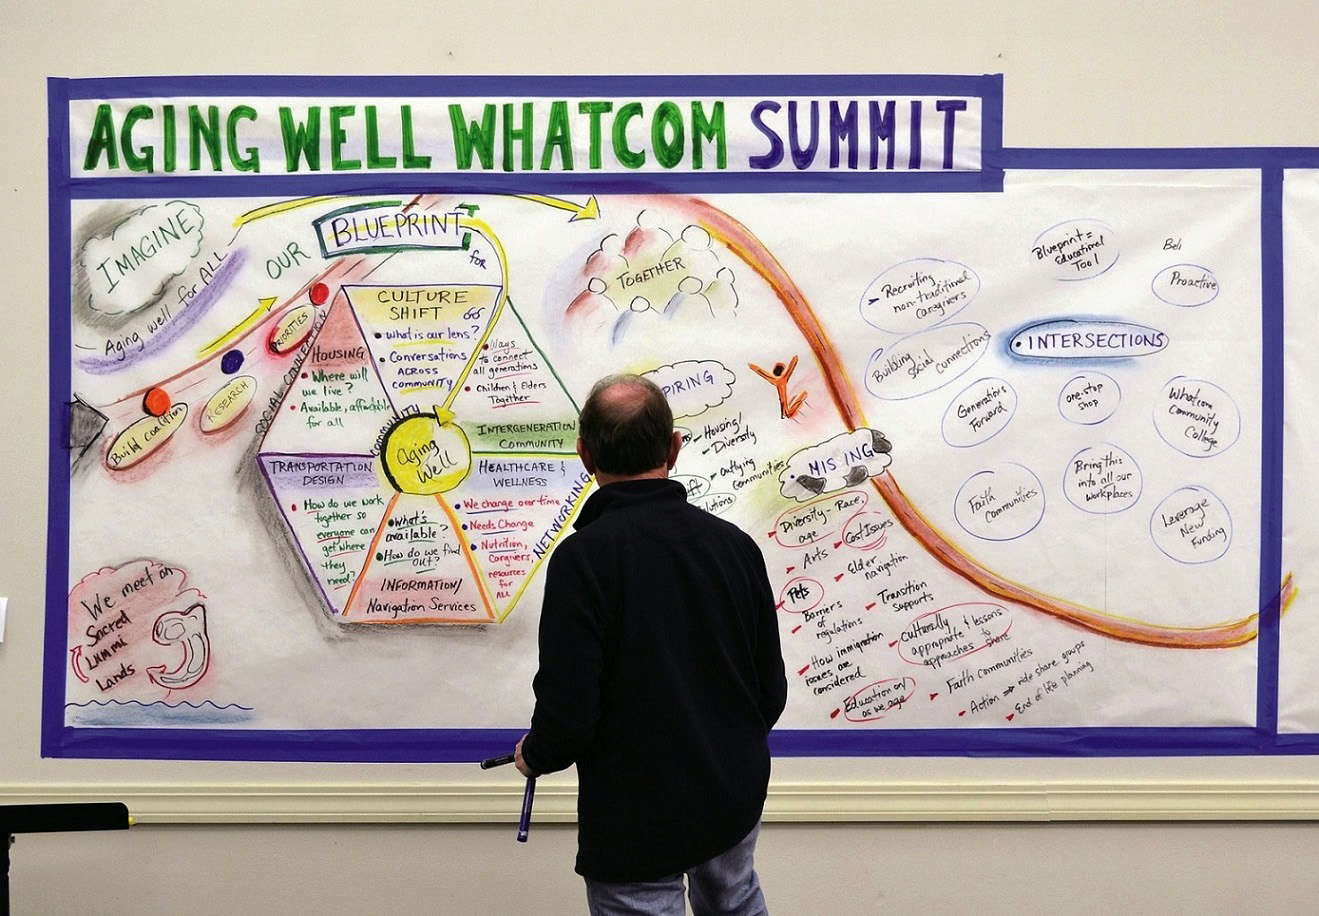 AGING WELL WHATCOM SUMMIT
IMAGINE
Aging well for ALL
OUR
BLUEPRINT
for
Build coalition
RESEARCH
PRIORITIES
SOCIAL CONNECTION
HOUSING
Where will
we live?
Available, affordable
for all
CULTURE
SHIFT
what is our lens?
Conversations
ACROSS
community
Ways
to connect
all generations
Children & Elders
Together
INTERGENERATION
COMMUNITY
COMMUNITY
Aging
Well
TRANSPORTATION
DESIGN
How do we work
together so
everyone can
get where
they
need?
What's
available?
How do we find
out?
INFORMATION/
Navigation Services
HEALTHCARE &
WELLNESS
We change over time
Needs Change
Nutrition,
Caregivers,
resources
for
ALL
NETWORKING
We meet on
Sacred
Lummi
Lands
TOGETHER
PIRING
- Housing/
- Diversity
- outlying
communities
MISSING
Diversity - Race,
age
Cost Issues
Arts
Elder
navigation
Pets
Barriers
of
regulations
Transition
supports
How immigration
issues are
considered
culturally
appropriate & lessons
approaches to
share
Education on/
as we age
Faith communities
Action ⇒ ride share groups
End of life planning
- Recruiting
non-traditional
caregivers
Building
social connections
Blueprint =
Educational
Tool
Proactive
INTERSECTIONS
Generations
Forward
one-stop
shop
Whatcom
Community
College
Faith
Communities
Bring this
into all our
workplaces
Leverage
New
Funding